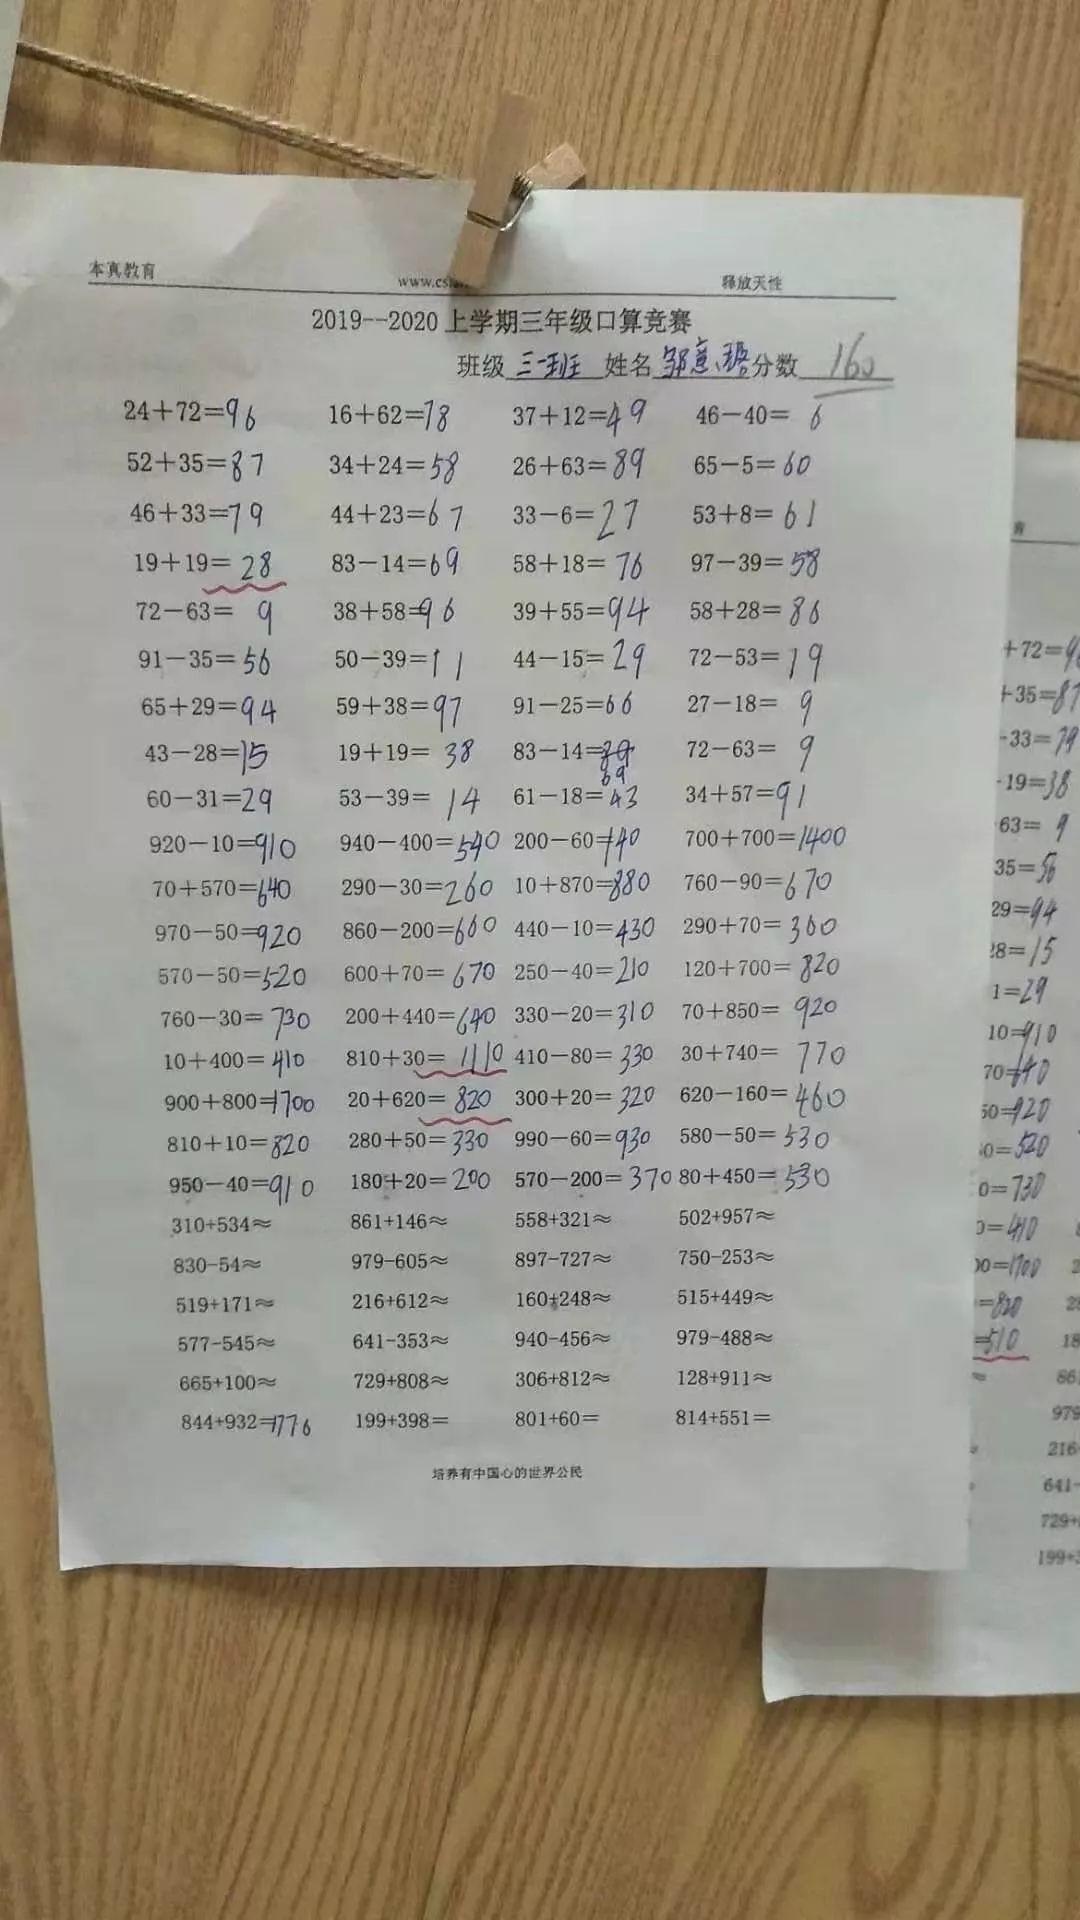 本真教育 释放天性
2019--2020上学期三年级口算竞赛
班级 三一班 姓名 邹意 分数 160
24+72=96 16+62=78 37+12=49 46-40=6
52+35=87 34+24=58 26+63=89 65-5=60
46+33=79 44+23=67 33-6=27 53+8=61
19+19=28 83-14=69 58+18=76 97-39=58
72-63=9 38+58=96 39+55=94 58+28=86
91-35=56 50-39=11 44-15=29 72-53=19
65+29=94 59+38=97 91-25=66 27-18=9
43-28=15 19+19=38 83-14=69 72-63=9
60-31=29 53-39=14 61-18=43 34+57=91
920-10=910 940-400=540 200-60=140 700+700=1400
70+570=640 290-30=260 10+870=880 760-90=670
970-50=920 860-200=660 440-10=430 290+70=360
570-50=520 600+70=670 250-40=210 120+700=820
760-30=730 200+440=640 330-20=310 70+850=920
10+400=410 810+30=1110 410-80=330 30+740=770
900+800=1700 20+620=820 300+20=320 620-160=460
810+10=820 280+50=330 990-60=930 580-50=530
950-40=910 180+20=200 570-200=370 80+450=530
310+534≈ 861+146≈ 558+321≈ 502+957≈
830-54≈ 979-605≈ 897-727≈ 750-253≈
519+171≈ 216+612≈ 160+248≈ 515+449≈
577-545≈ 641-353≈ 940-456≈ 979-488≈
665+100≈ 729+808≈ 306+812≈ 128+911≈
844+932=1776 199+398= 801+60= 814+551=
培养有中国心的世界公民
育
+72=96
+35=87
-33=79
-19=38
63=9
35=56
29=94
28=15
1=29
10=910
70=640
50=920
0=520
0=730
0=410
00=1700
=820
=510
979
216
641-
729+
199+3